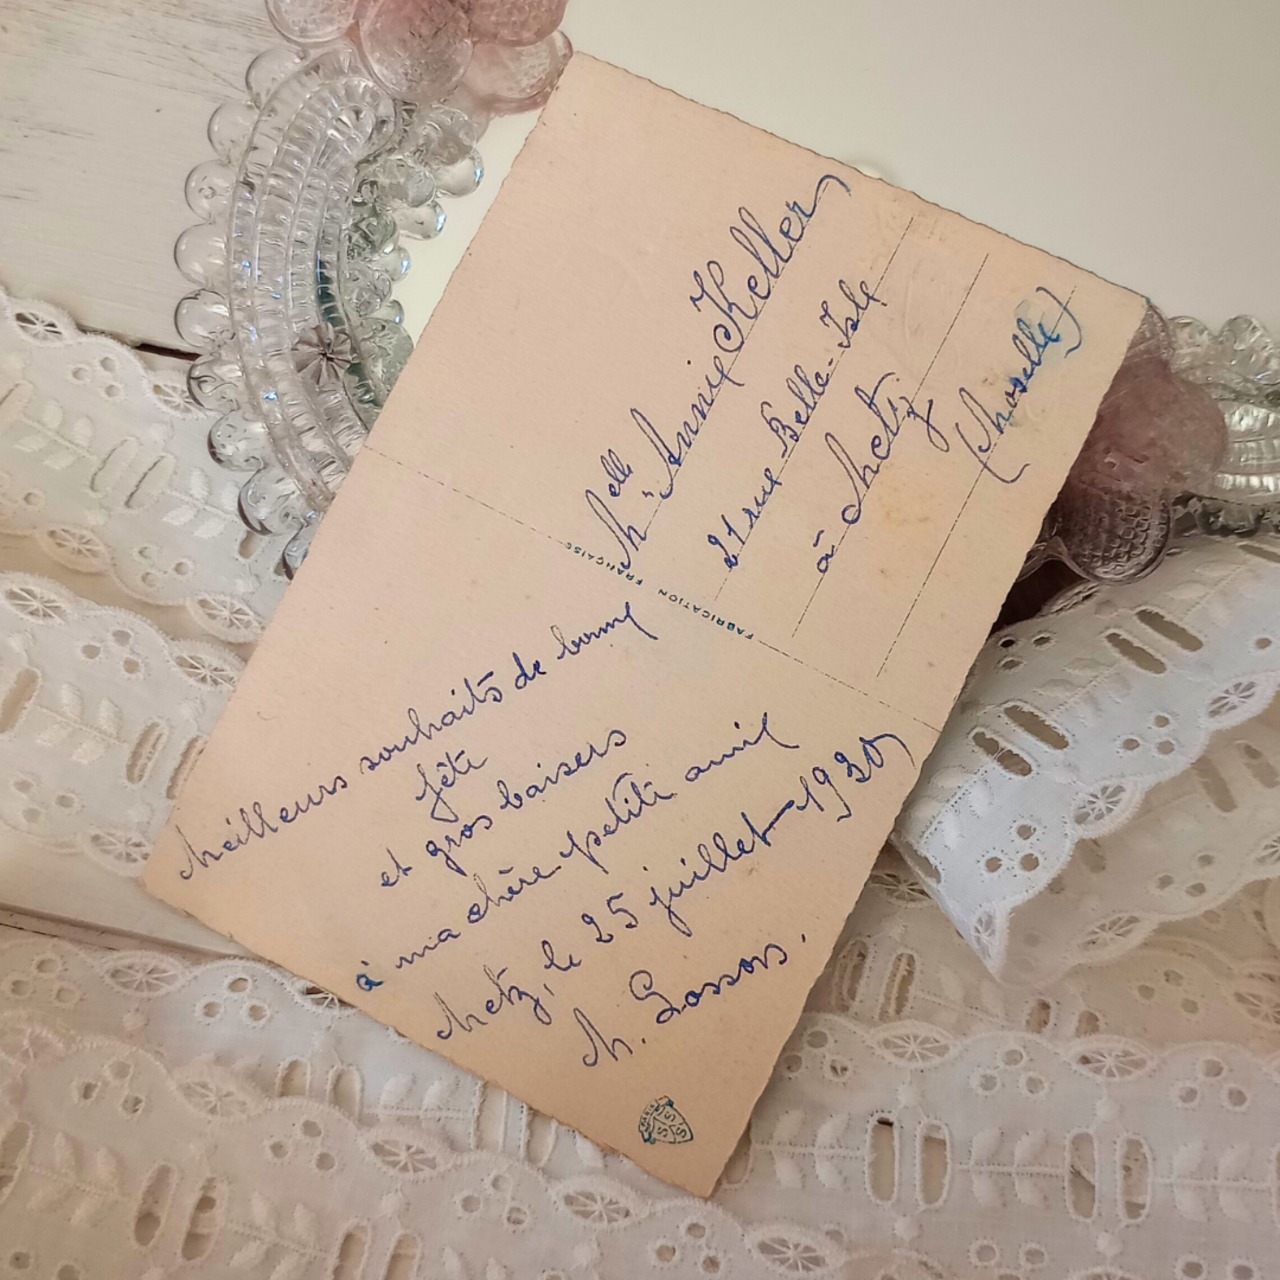 Meilleurs souhaits de bonne
fête
et gros baisers
à ma chère petite amie
Metz, le 25 juillet - 1930
M. Gossois.
FABRICATION FRANÇAISE
Melle Annie Keller
21 rue Belle-Isle
à Metz
(Moselle)
PARIS